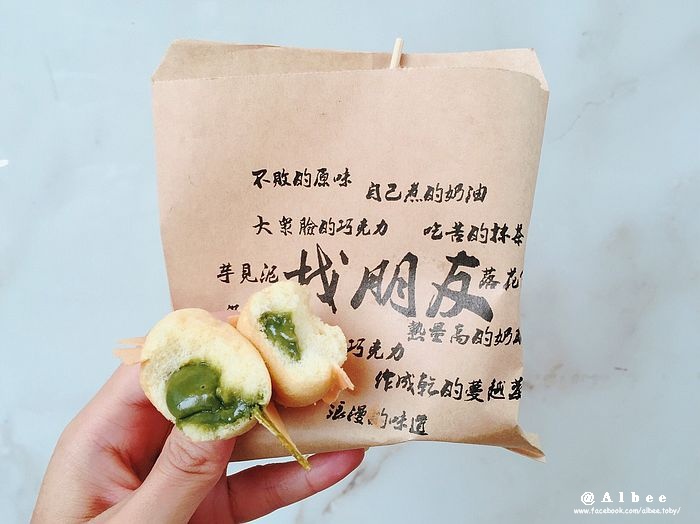 不敗的原味
自己煮的奶油
大眾臉的巧克力
吃苦的抹茶
芋見泥
找朋友
落花
熱量高的奶
巧克力
作成乾的蔓越莓
浪漫的味道
@Albee
www.facebook.com/albee.toby/